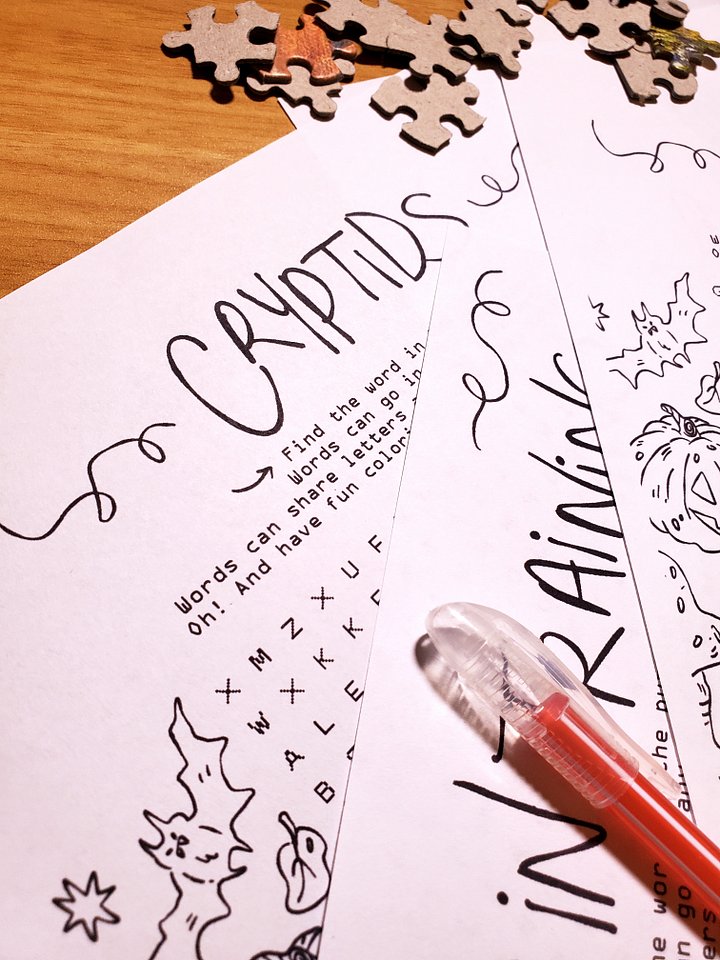 CRYPTiDS
Find the word in
Words can go in
Words can share letters
Oh! And have fun colori
+ M Z + U F
W + K K
A L E
B
iN TRAiNiN
he wor
n go
ers